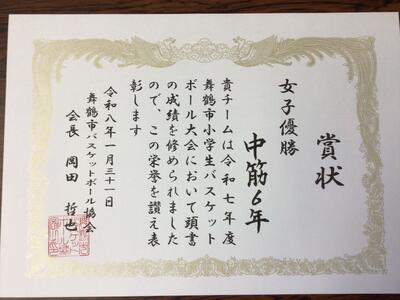 賞状
女子優勝
中筋6年
貴チームは令和七年度
舞鶴市小学生バスケット
ボール大会において頭書
の成績を修められました
ので、この栄誉を讃え表
彰します
令和八年一月三十一日
舞鶴市バスケットボール協会
会長 岡田 哲也